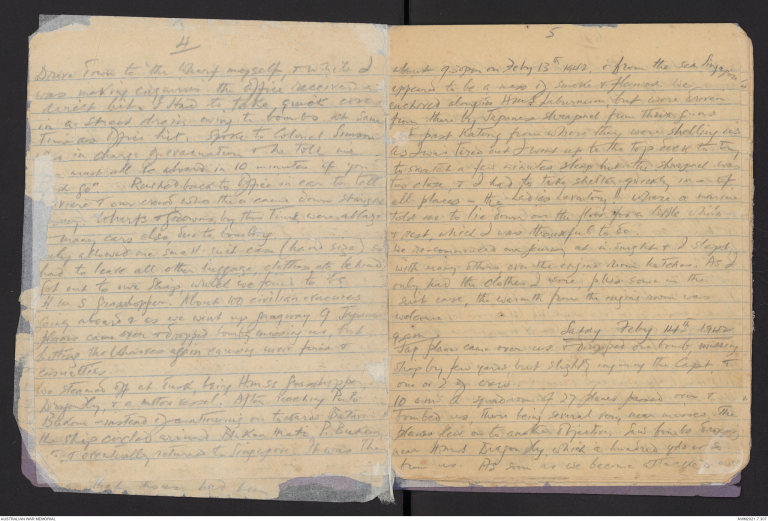 4
Drove Town to the Wharf myself, & while I
was making enquiries the office received a
direct hit. I had to take quick cover
in a street drain owing to bombs at same
time as office hit. Spoke to Colonel
in charge of evacuation & he told me
must all be aboard in 10 minutes if you
go". Rushed back to Office in car to tell
our crowd who then came down straight
away. Wharfs & Godowns by this time were ablaze
many cars also, due to bombing.
allowed one small suit case (hand size) so
had to leave all other luggage, clothes etc behind
Got out to our ship, which we found to be
H.M.S Grasshopper. About 100 civilian evacuees
being aboard & as we went up gangway 9 Japanese
planes came over & dropped bombs missing us, but
hitting the Wharves again causing more fires &
casualties
We steamed off at dusk being HMSs Grasshopper,
Dragonfly, & a motor vessel. After reaching Pulo
Bukom instead of continuing on towards Batavia
the ship circled around Blakan Mati, P. Bukom,
& eventually returned to Singapore. It was then
5
about 9.30pm on Feby 13th 1942, & from the sea Singapore
appeared to be a mass of smoke & flames. We
anchored alongside HMS Laburnum, but were driven
from there by Japanese shrapnel from their guns
& past Katong from where they were shelling us
As I was tired out I went up to the top deck to try
to snatch a few minutes sleep but the shrapnel was
too close, & I had to take shelter quickly in a of
all places in the "Ladies Lavatory" where a marine
told me to lie down on the floor for a little while
& rest, which I was thankful to do.
We recommenced our journey at midnight & I slept
with many others over the engine room hatches. As I
only had the clothes I wore, plus some in the
suit case, the warmth from the engine room was
welcome.
9am. Satdy Feby 14th 1942
Jap plane came over us & dropped one bomb, missing
ship by few yards but slightly injuring the Capt &
one or 2 of crew.
10 am: a squadron of 27 planes passed over &
bombed us, there being several very near misses. The
planes flew on to another objective. Few bombs dropped
near HMS Dragonfly which a hundred yds or so
from us. As soon as we became
AUSTRALIAN WAR MEMORIAL
AWM2021.7.307